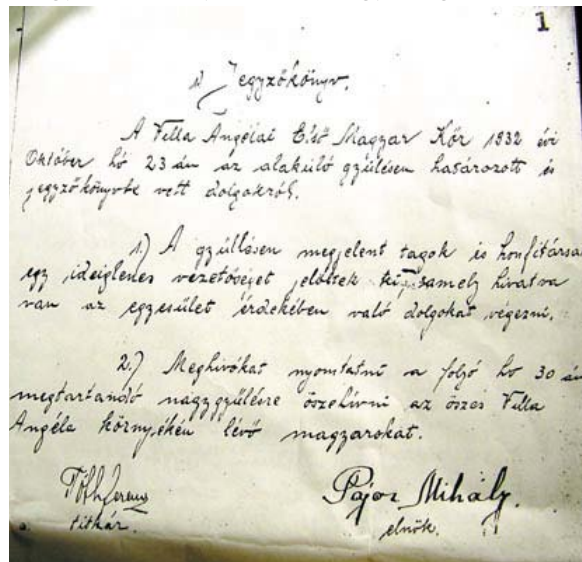 1
1) Jegyzőkönyv.
A Villa Ángélai Első Magyar Kör 1932 évi
Október hó 23 án az alakúló gyűlésen határozott és
jegyzőkönyvbe vett dolgokról.
1.) A gyűllésen megjelent tagok és honfitársa
egy ideiglenes vezetőséget jelöltek ki, amely hivatva
van az egyesület érdekében való dolgokat végezni.
2.) Meghivókat nyomtatni a folyó hó 30 án
megtartandó nagygyűlésre öszehívni az öszes Villa
Angéla környékén lévő magyarokat.
Tóth Ferenc
titkár.
Pajor Mihály.
elnök.